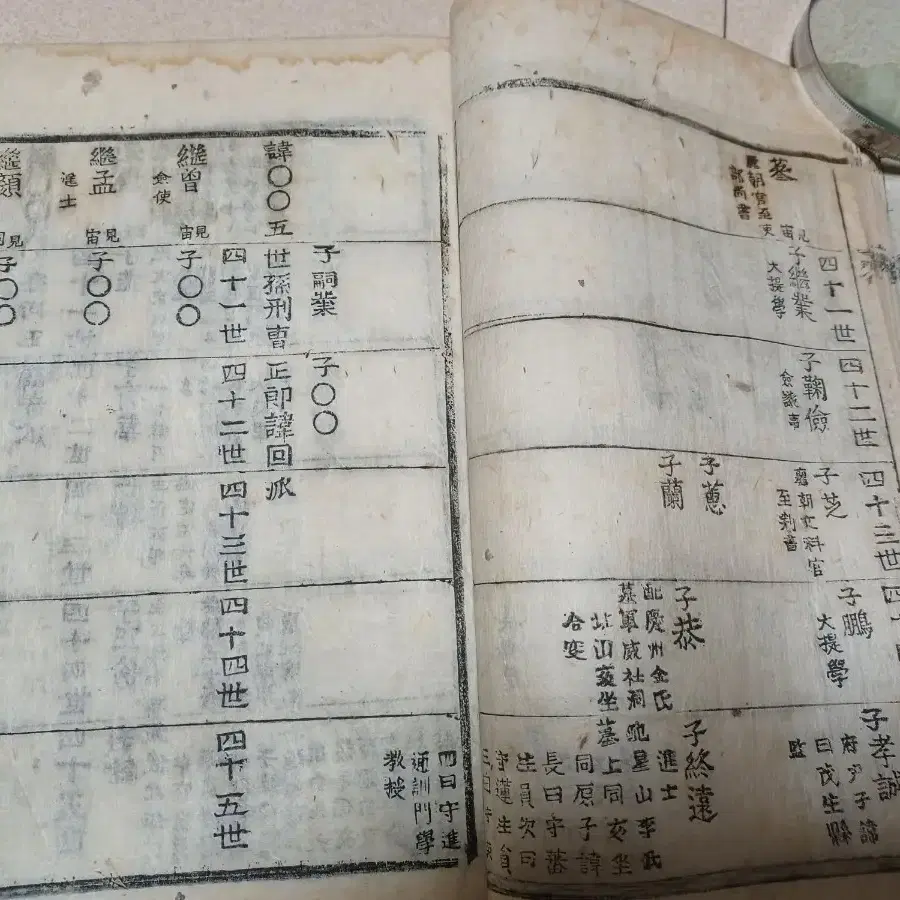 四十一世
四十二世
四十三世
子繼業
大提學
子鞠儉
子芝
麗朝文科官
至判書
子鵬
大提學
子孝誠
府尹子諱
曰茂生縣
監
子蕙
子蘭
子恭
配慶州金氏
子終遠
進士
星山李氏
上同亥坐
同原子諱
長曰守
生員次曰
守蓮生員
四曰守進
通訓門學
教授
子嗣業
子〇〇
諱〇〇五世孫刑曹正郎諱回派
四十一世
四十二世
四十三世
四十四世
四十五世
繼曾
僉使
見宙
子〇〇
繼孟
進士
見宙
子〇〇
繼顔
見
子〇〇